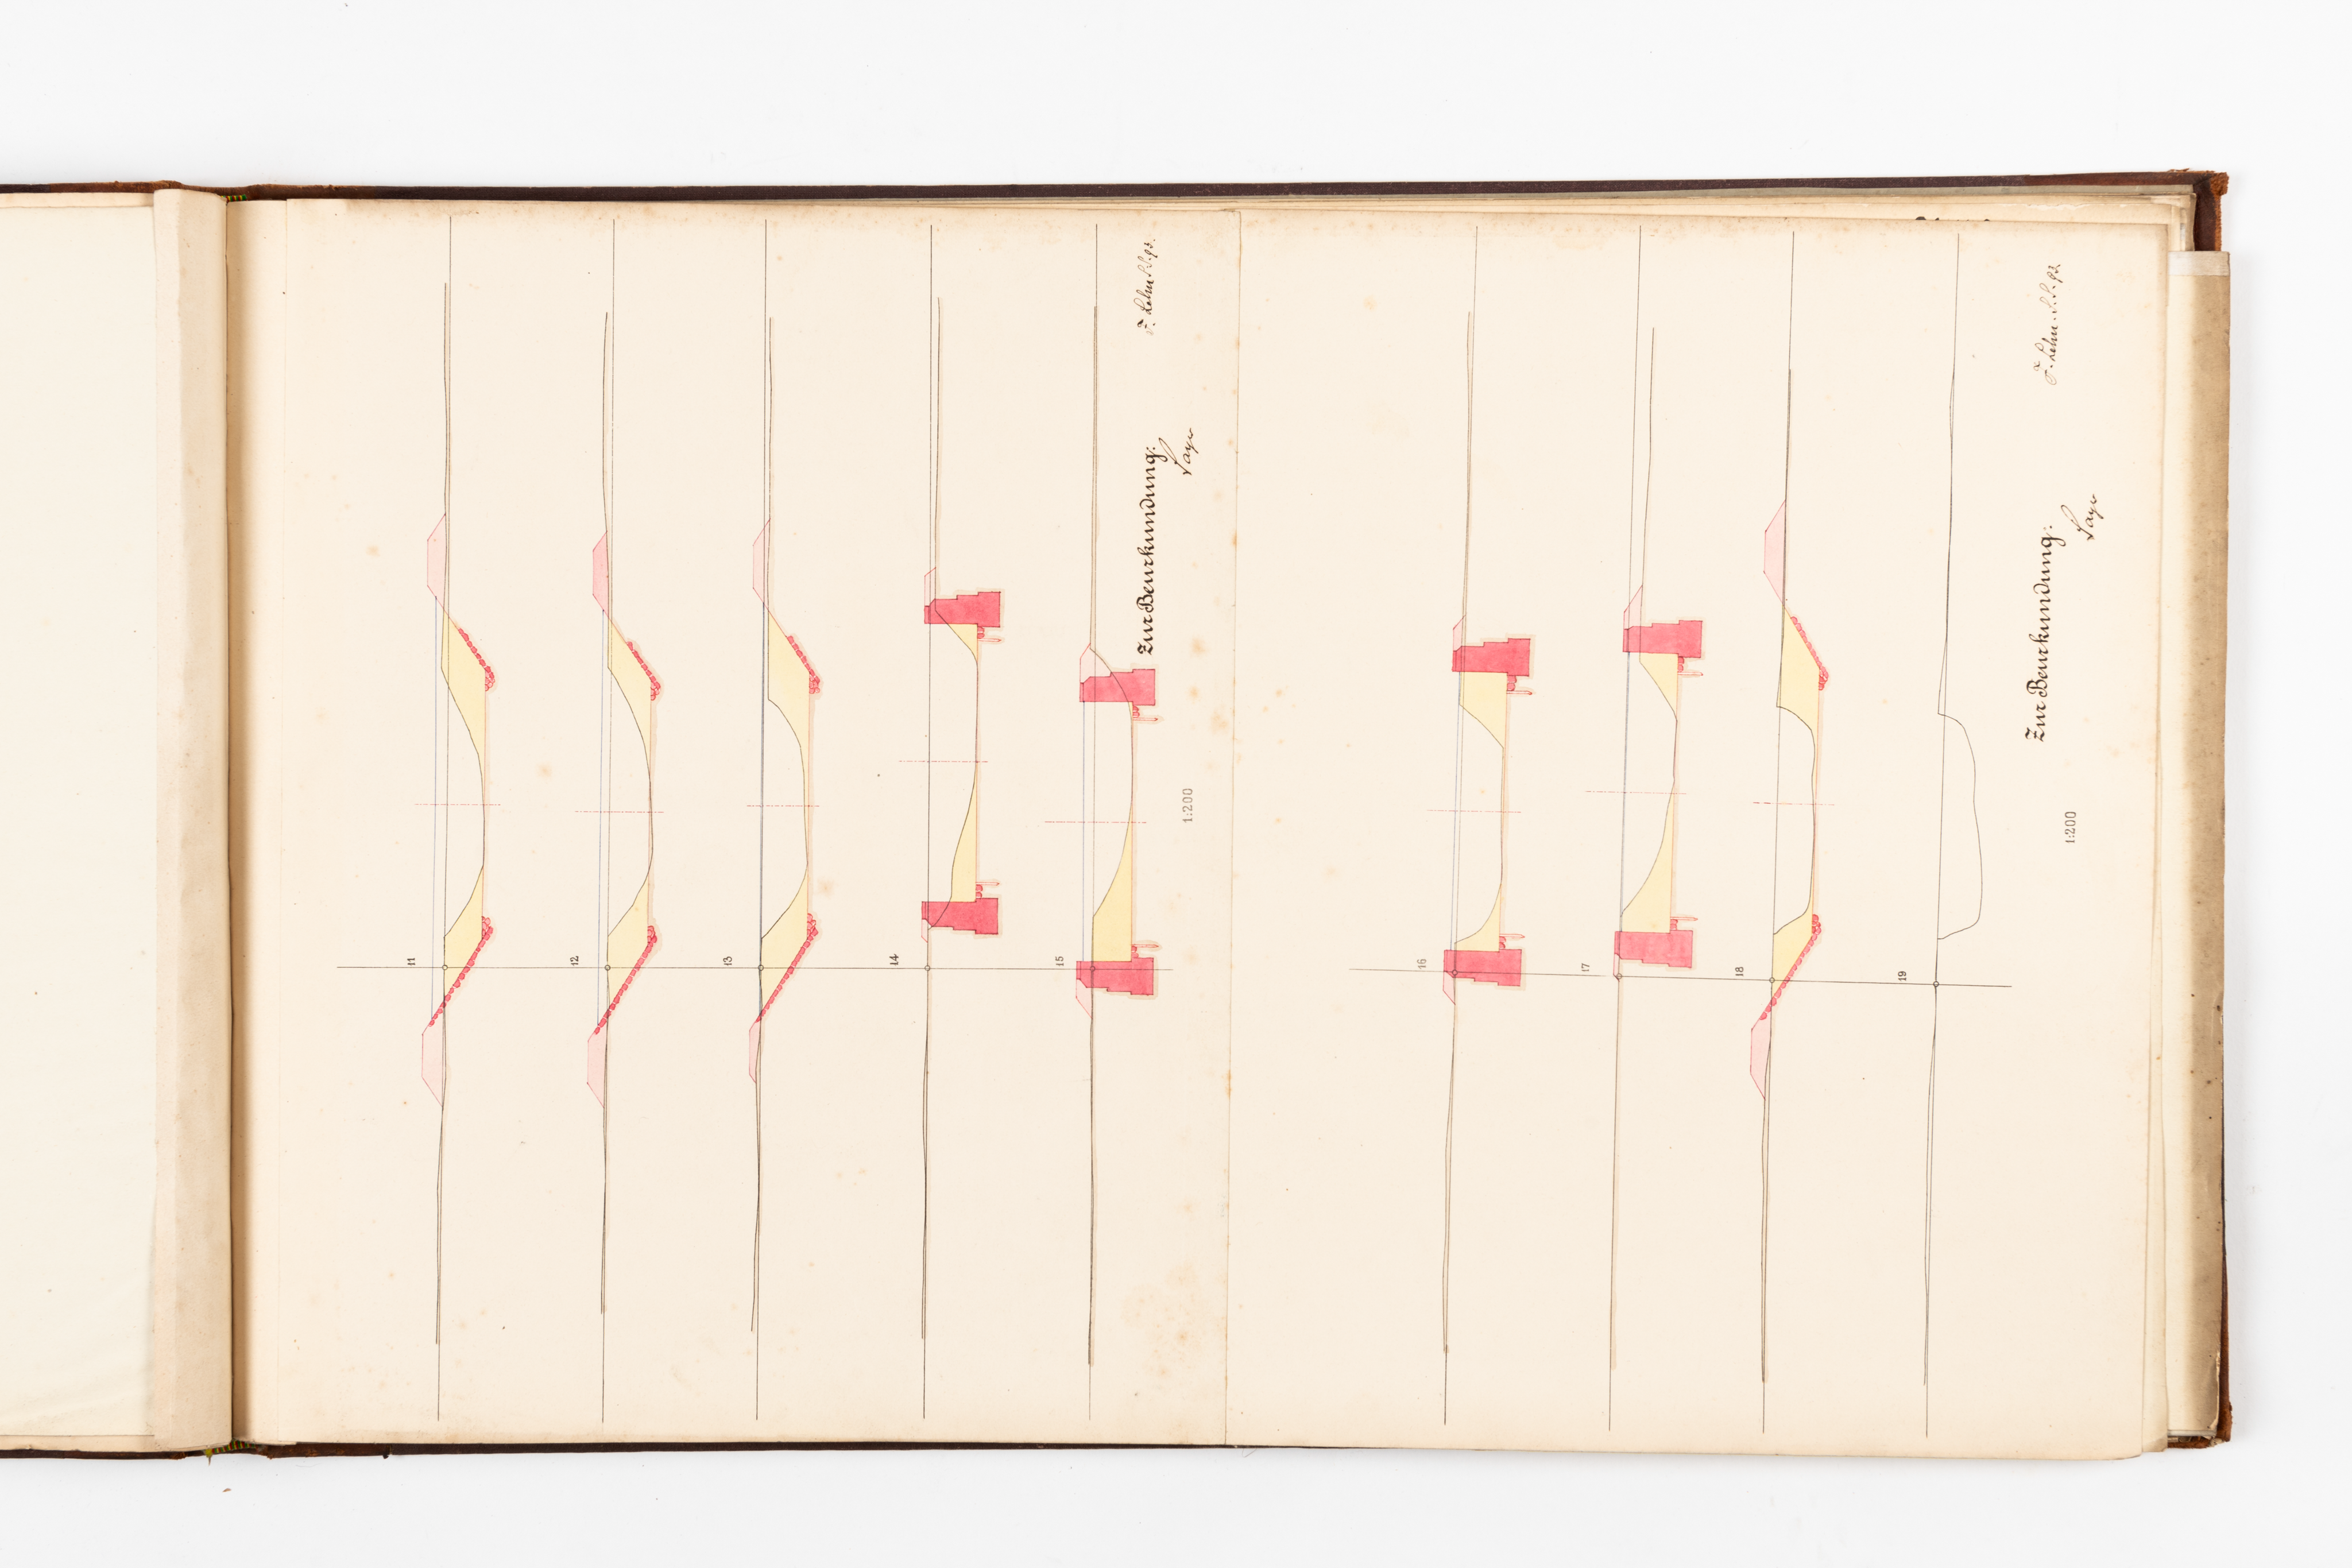 11
12
13
14
15
1:200
Zur Beurkundung:
16
17
18
19
1:200
Zur Beurkundung: